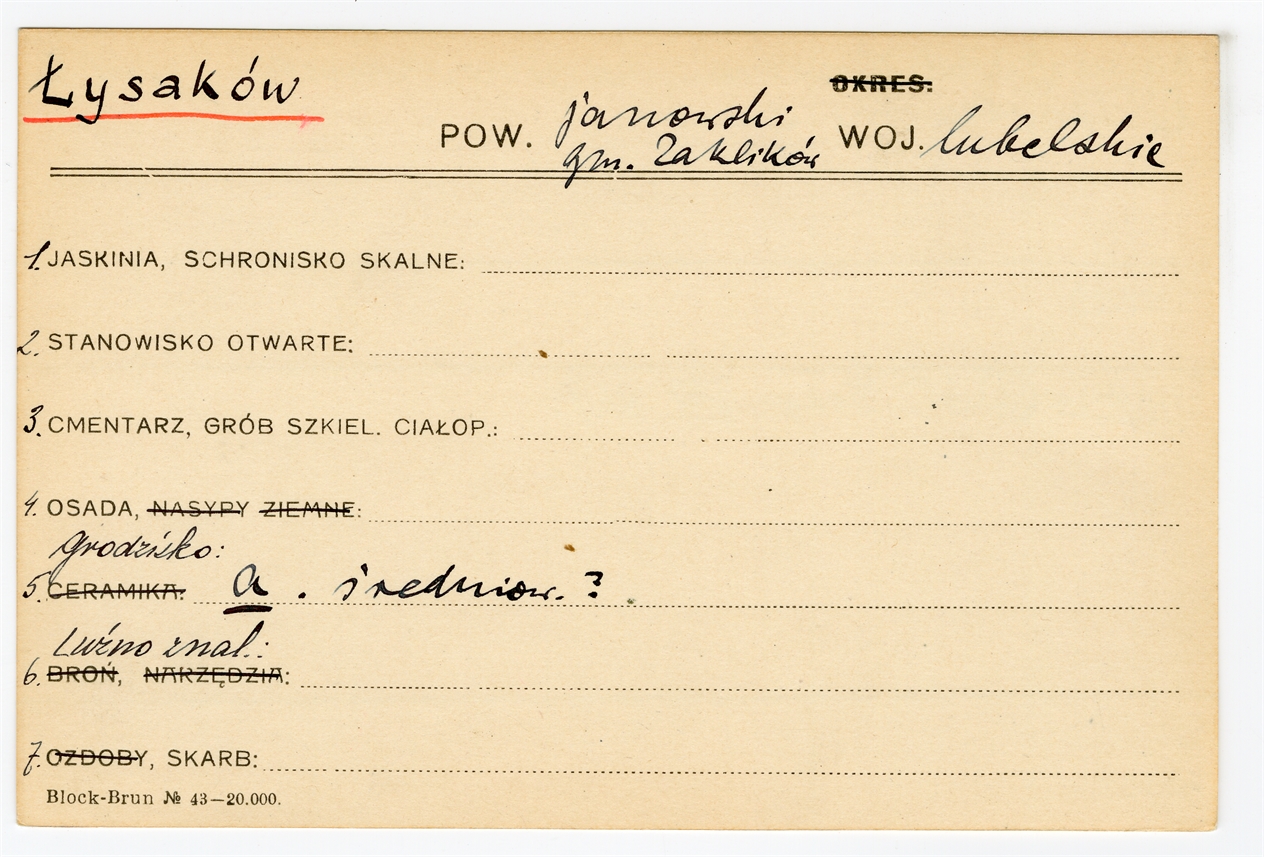 Łysaków
OKRES:
POW. janowski WOJ. lubelskie
gm. Zaklików
1. JASKINIA, SCHRONISKO SKALNE:
2. STANOWISKO OTWARTE:
3. CMENTARZ, GRÓB SZKIEL. CIAŁOP.:
4. OSADA, NASYPY ZIEMNE:
grodzisko:
5. CERAMIKA: a. średniow. ?
Luźno znal.:
6. BROŃ, NARZĘDZIA:
7. OZDOBY, SKARB:
Block-Brun № 43—20.000.